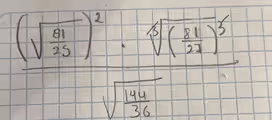 (√(81/25))² · ∛((81/27)³)
√(144/36)